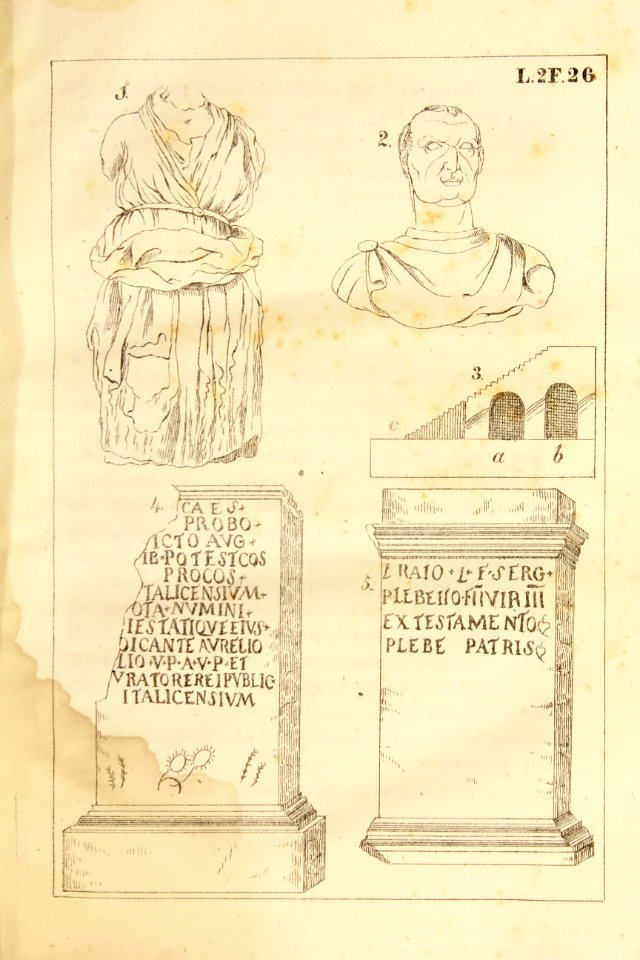 L.2F.26
1.
2.
3.
c
a
b
4.
CAES+
PROBO+
ICTO AVG+
IB·POTESTCOS
PROCOS+
TALICENSIVM+
OTA+NVMINI+
IESTATIQVEEIVS+
DICANTE AVRELIO
LIO·V·P·A·V·P·ET
VRATORE REI PVBLIC
ITALICENSIVM
5.
L RAIO+L·F·SERG+
EX TESTAMENTO
PLEBE PATRIS